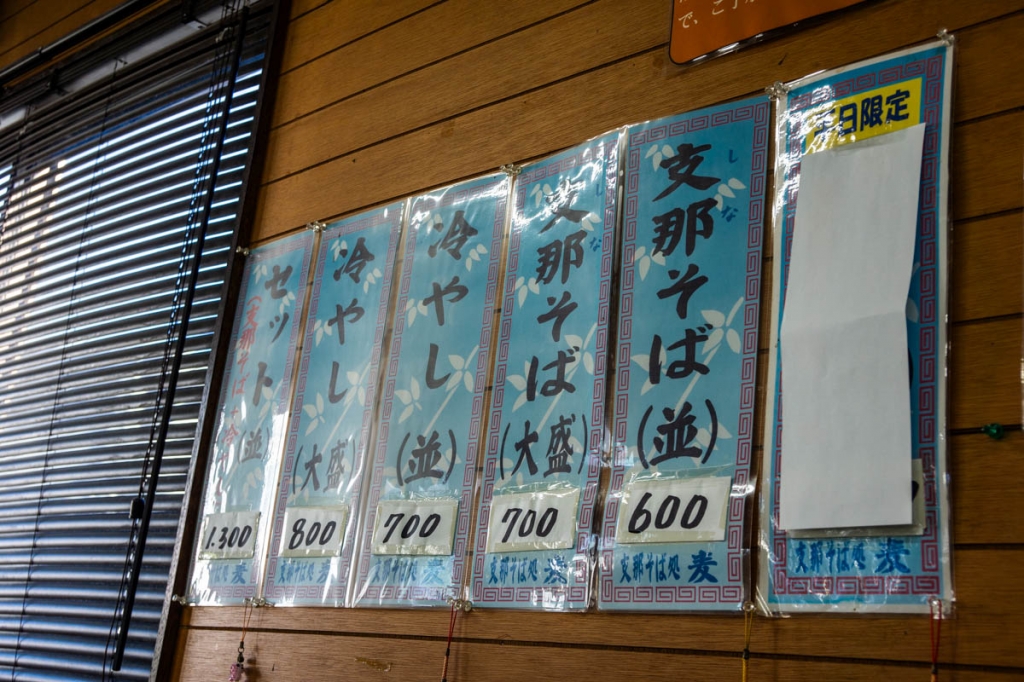 で、ご了承
土日限定
支那そば処 麦
支那そば(並)
しな
600
支那そば処 麦
支那そば(大盛)
しな
700
支那そば処 麦
冷やし(並)
700
支那そば処 麦
冷やし(大盛)
800
支那そば処 麦
セット(並)
(支那そば+
1.300
支那そば処 麦